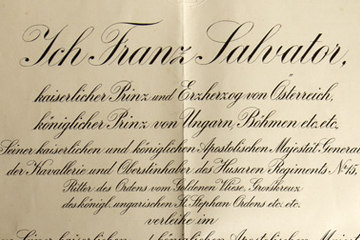 Ich Franz Salvator,
kaiserlicher Prinz und Erzherzog von Österreich,
königlicher Prinz von Ungarn, Böhmen etc. etc.
Seiner kaiserlichen und königlichen Apostolischen Majestät General
der Kavallerie und Oberstinhaber des Husaren Regiments № 15,
Ritter des Ordens vom Goldenen Vliese, Grosskreuz
des königl. ungarischen St. Stephan Ordens etc. etc.
verleihe im
kaiserlichen und königlichen Apostolischen